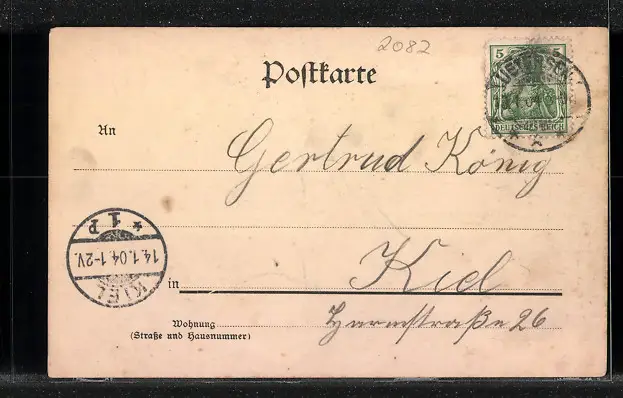 2082
Postkarte
5 5
DEUTSCHES REICH
An
Gertrud König
KIEL
14.1.04.1-2V.
* 1 P
in Kiel
Wohnung
(Straße und Hausnummer)
26